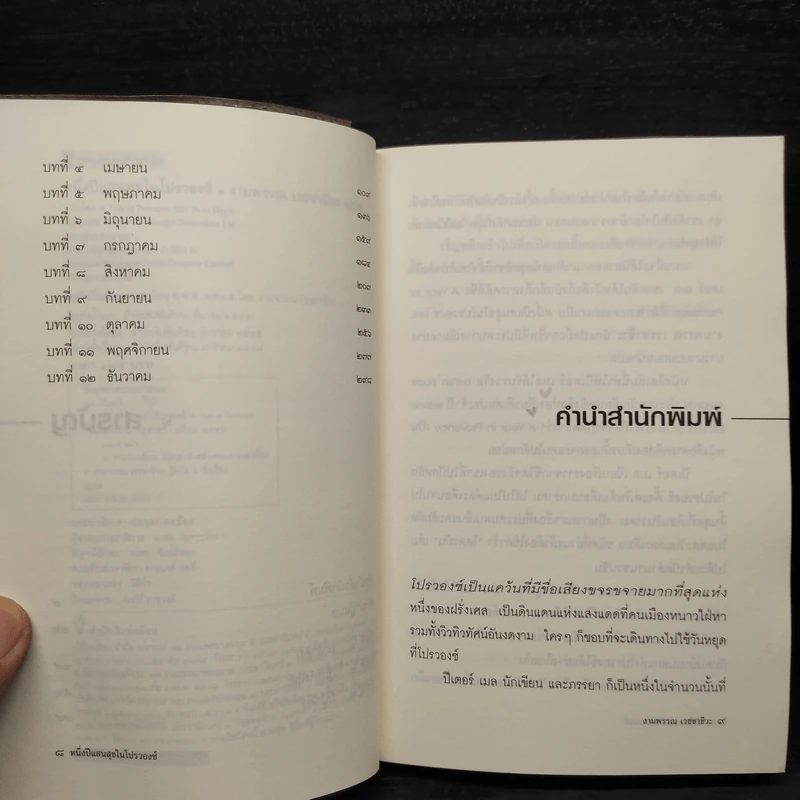 บทที่ ๔ เมษายน ๑๐๙
บทที่ ๕ พฤษภาคม ๑๓๖
บทที่ ๖ มิถุนายน ๑๕๙
บทที่ ๗ กรกฎาคม ๑๘๔
บทที่ ๘ สิงหาคม ๒๐๓
บทที่ ๙ กันยายน ๒๓๑
บทที่ ๑๐ ตุลาคม ๒๕๖
บทที่ ๑๑ พฤศจิกายน ๒๗๗
บทที่ ๑๒ ธันวาคม ๒๙๘
๘ หนึ่งปีแสนสุขในโปรวองซ์
คำนำสำนักพิมพ์
โปรวองซ์เป็นแคว้นที่มีชื่อเสียงขจรขจายมากที่สุดแห่ง
หนึ่งของฝรั่งเศส เป็นดินแดนแห่งแสงแดดที่คนเมืองหนาวใฝ่หา
รวมทั้งวิวทิวทัศน์อันงดงาม ใครๆ ก็ชอบที่จะเดินทางไปใช้วันหยุด
ที่โปรวองซ์
ปีเตอร์ เมล นักเขียน และภรรยา ก็เป็นหนึ่งในจำนวนนั้นที่
งามพรรณ เวชชาชีวะ ๙